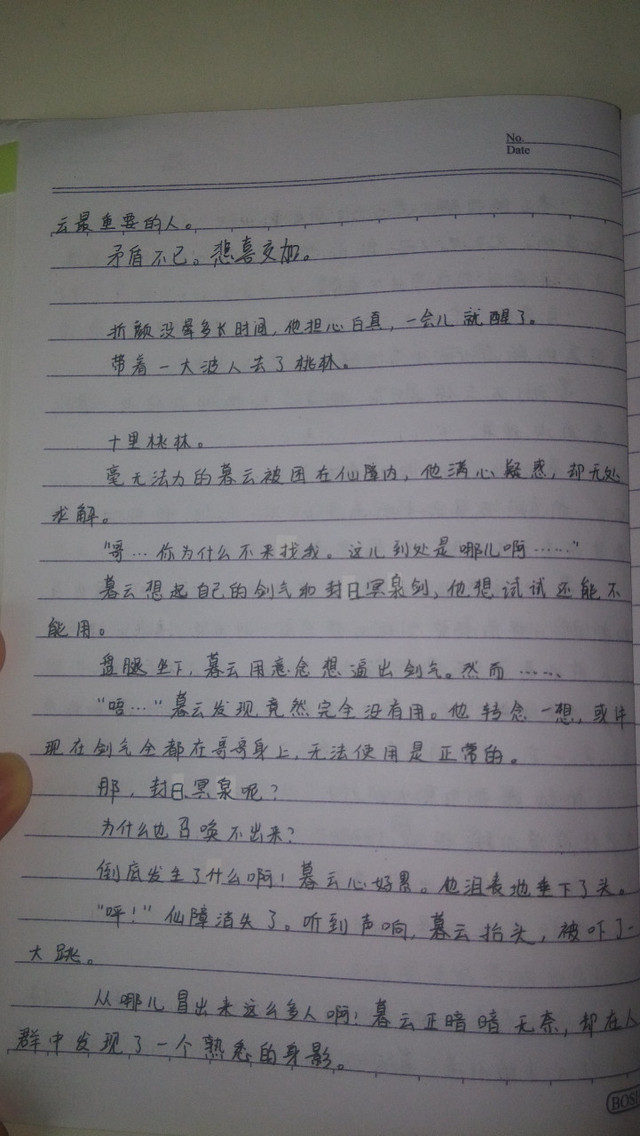 No.
Date
云最重要的人。
矛盾不已。悲喜交加。
折颜没晕多长时间,他担心白真,一会儿就醒了。
带着一大波人去了桃林。
十里桃林。
毫无法力的慕云被困在仙障内,他满心疑惑,却无处
求解。
“哥…你为什么不来找我。这儿到处是哪儿啊……”
慕云想起自己的剑气和封日冥泉剑,他想试试还能不
能用。
盘腿坐下,慕云用意念想逼出剑气。然而……
“唔…”慕云发现竟然完全没有用。他转念一想,或许
现在剑气全都在哥哥身上,无法使用是正常的。
那,封日冥泉呢?
为什么也召唤不出来?
倒底发生了什么啊!慕云心好累。他沮丧地垂下了头。
“呯!”仙障消失了。听到声响,慕云抬头,被吓了一
大跳。
从哪儿冒出来这么多人啊!慕云正暗暗无奈,却在人
群中发现了一个熟悉的身影。